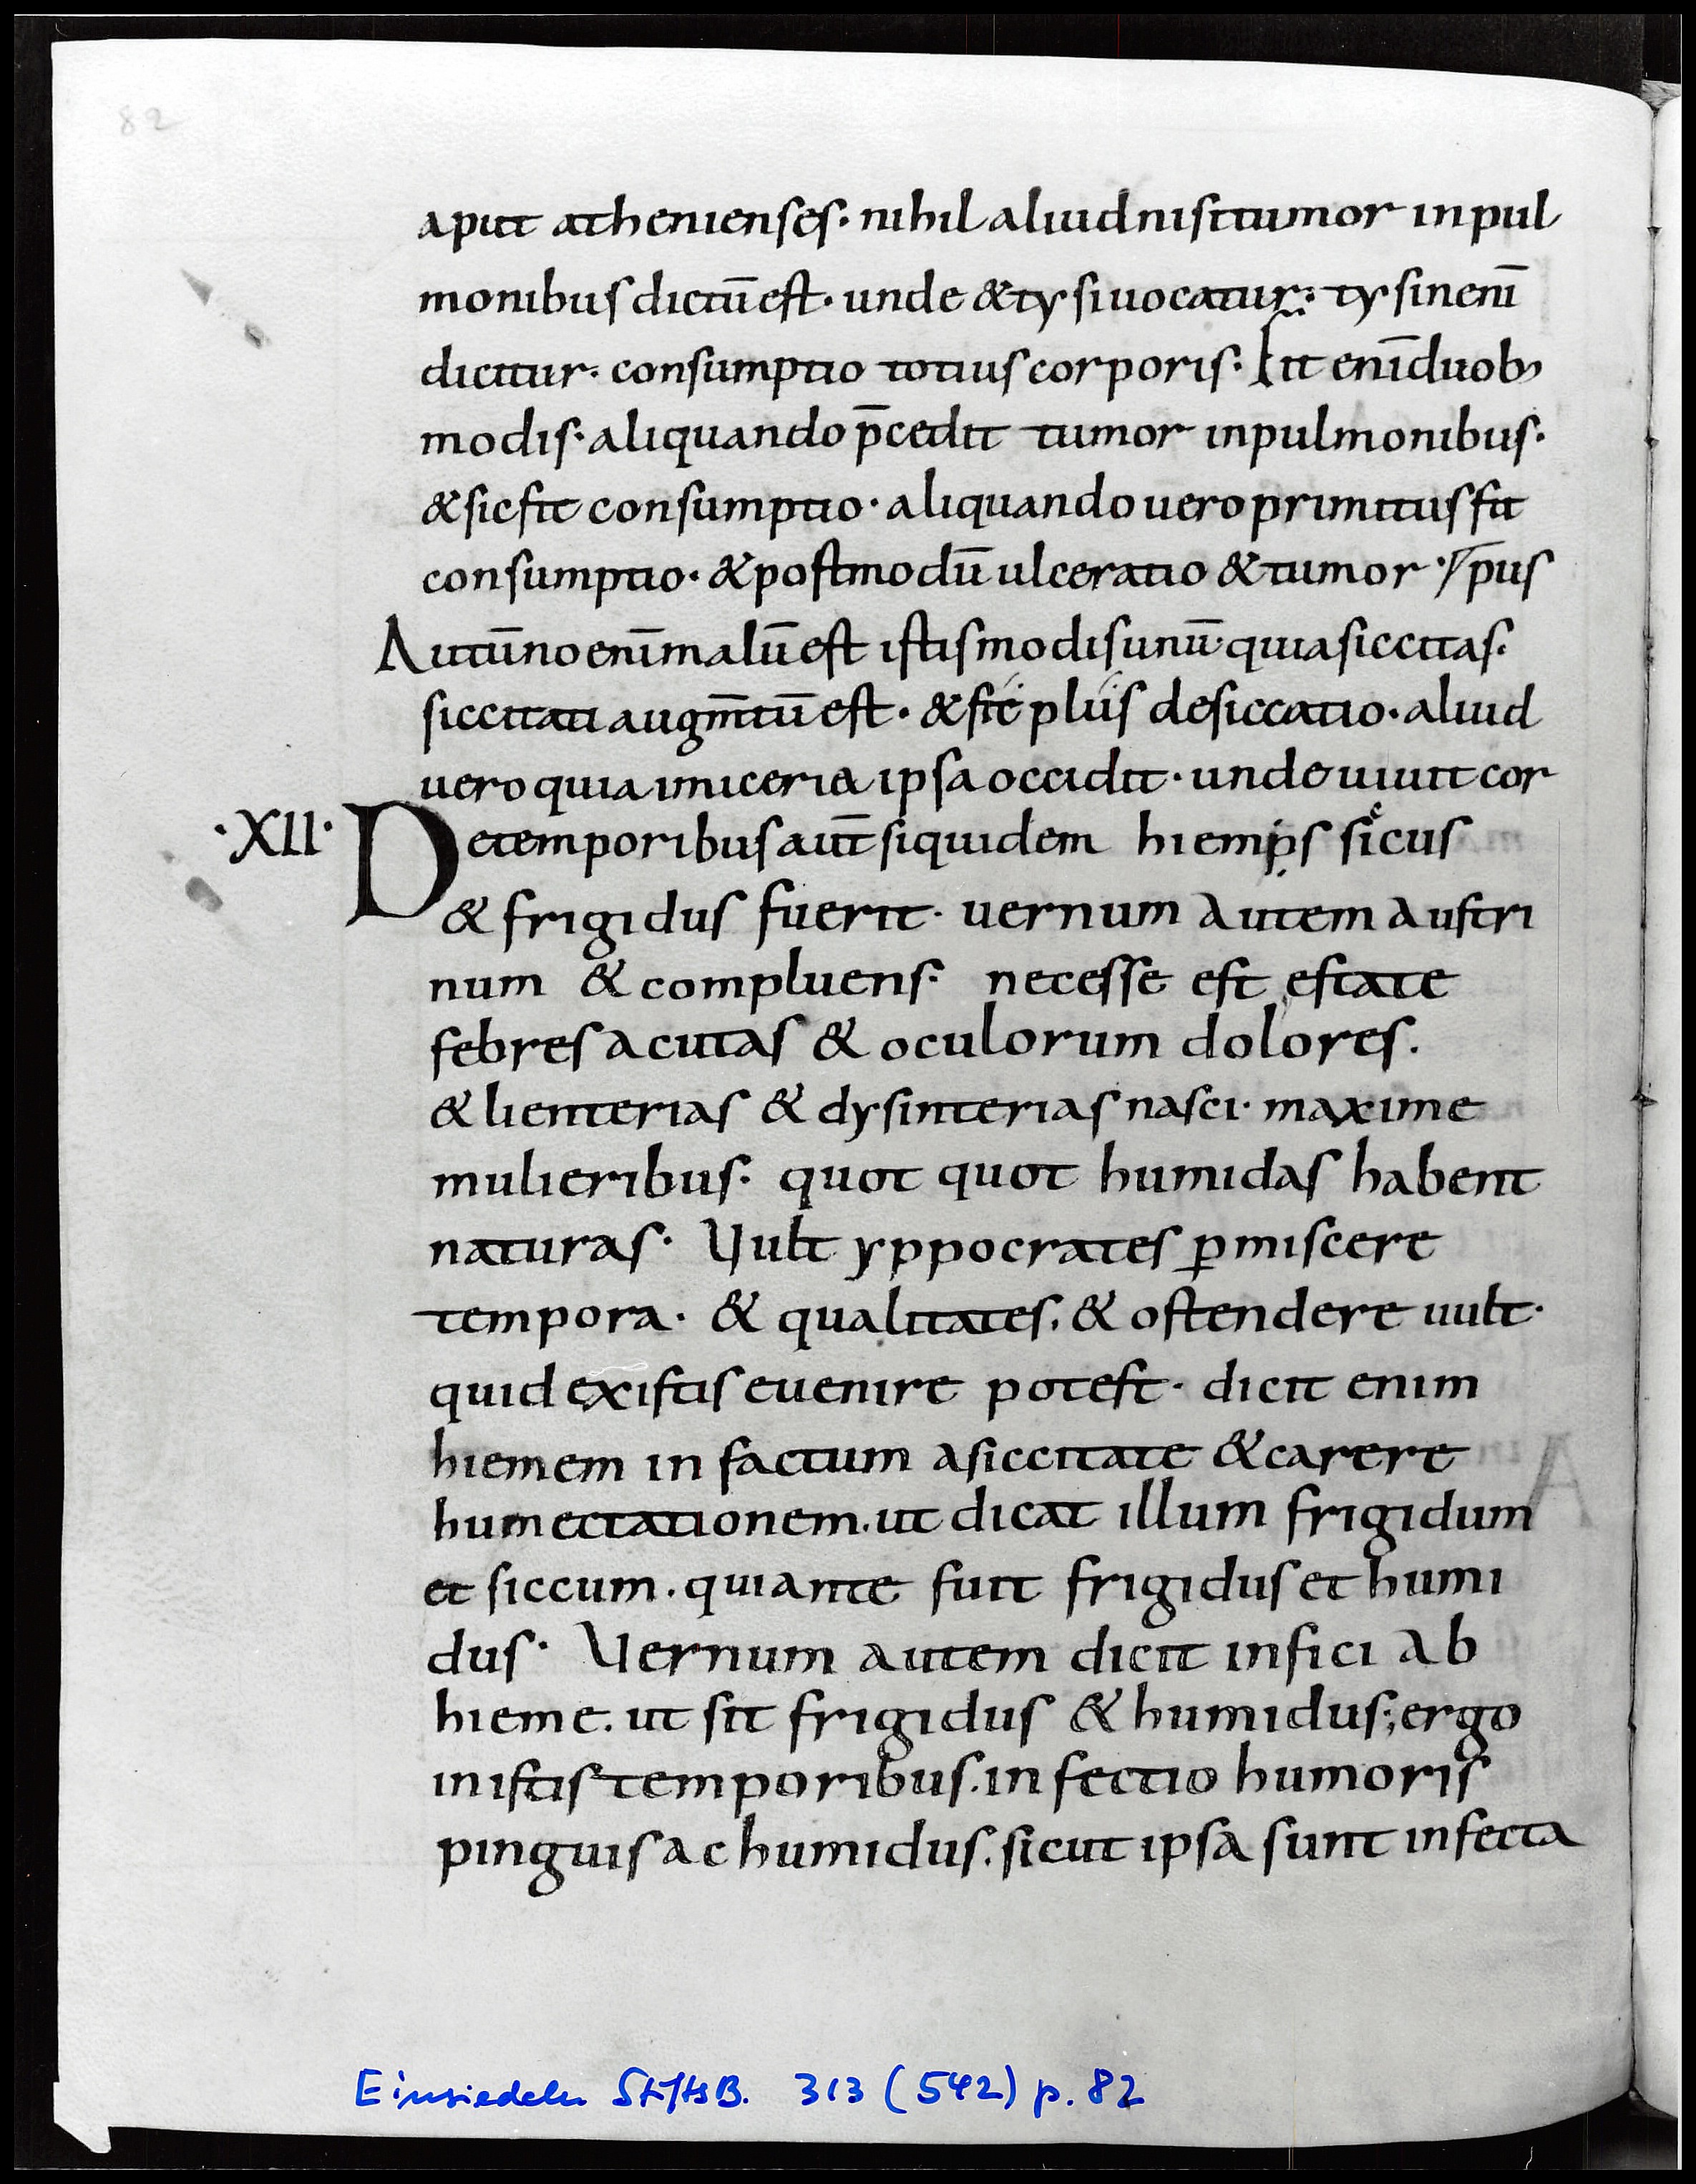 82
aput athenienses· nihil aliud nisi tumor in pul
monibus dictū est· unde & tysi uocatur· tysin enī
dicitur· consumptio totius corporis· Fit enī duob;
modis· aliquando p̄cedit tumor in pulmonibus·
& sic fit consumptio· aliquando uero primitus fit
consumptio· & postmodū ulceratio & tumor
Autūno enī malū est istis modis unū· quia siccitas·
siccitati augm̄tū est· & fit plus desiccatio· aliud
uero quia ipsa occidit· unde uiuit cor
·XII· De temporibus aut̄ siquidem hiemps sicus
& frigidus fuerit· uernum autem austri
num & compluens· necesse est estate
febres acutas & oculorum dolores.
& lienterias & dysinterias nasci· maxime
mulieribus· quot quot humidas habent
naturas· Vult yppocrates ꝑmiscere
tempora· & qualitates. & ostendere uult·
quid ex istis euenire potest· dicit enim
hiemem in factum a siccitate & carere
humectationem. ut dicat illum frigidum
et siccum. qui ante fuit frigidus et humi
dus· Vernum autem dicit infici ab
hieme. ut sit frigidus & humidus; ergo
in istis temporibus. infectio humoris
pinguis ac humidus. sicut ipsa sunt infecta
Einsiedeln StiftsB. 313 (542) p. 82